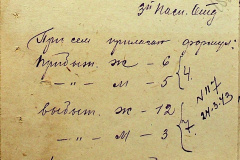 3й Пасп. стд
При сем прилагаю формуляр:
Прибыт. Ж – 6
–"– М – 5 } 4.
выбыт. Ж – 12
–"– М – 3 } 7.
N 117
24.3.43